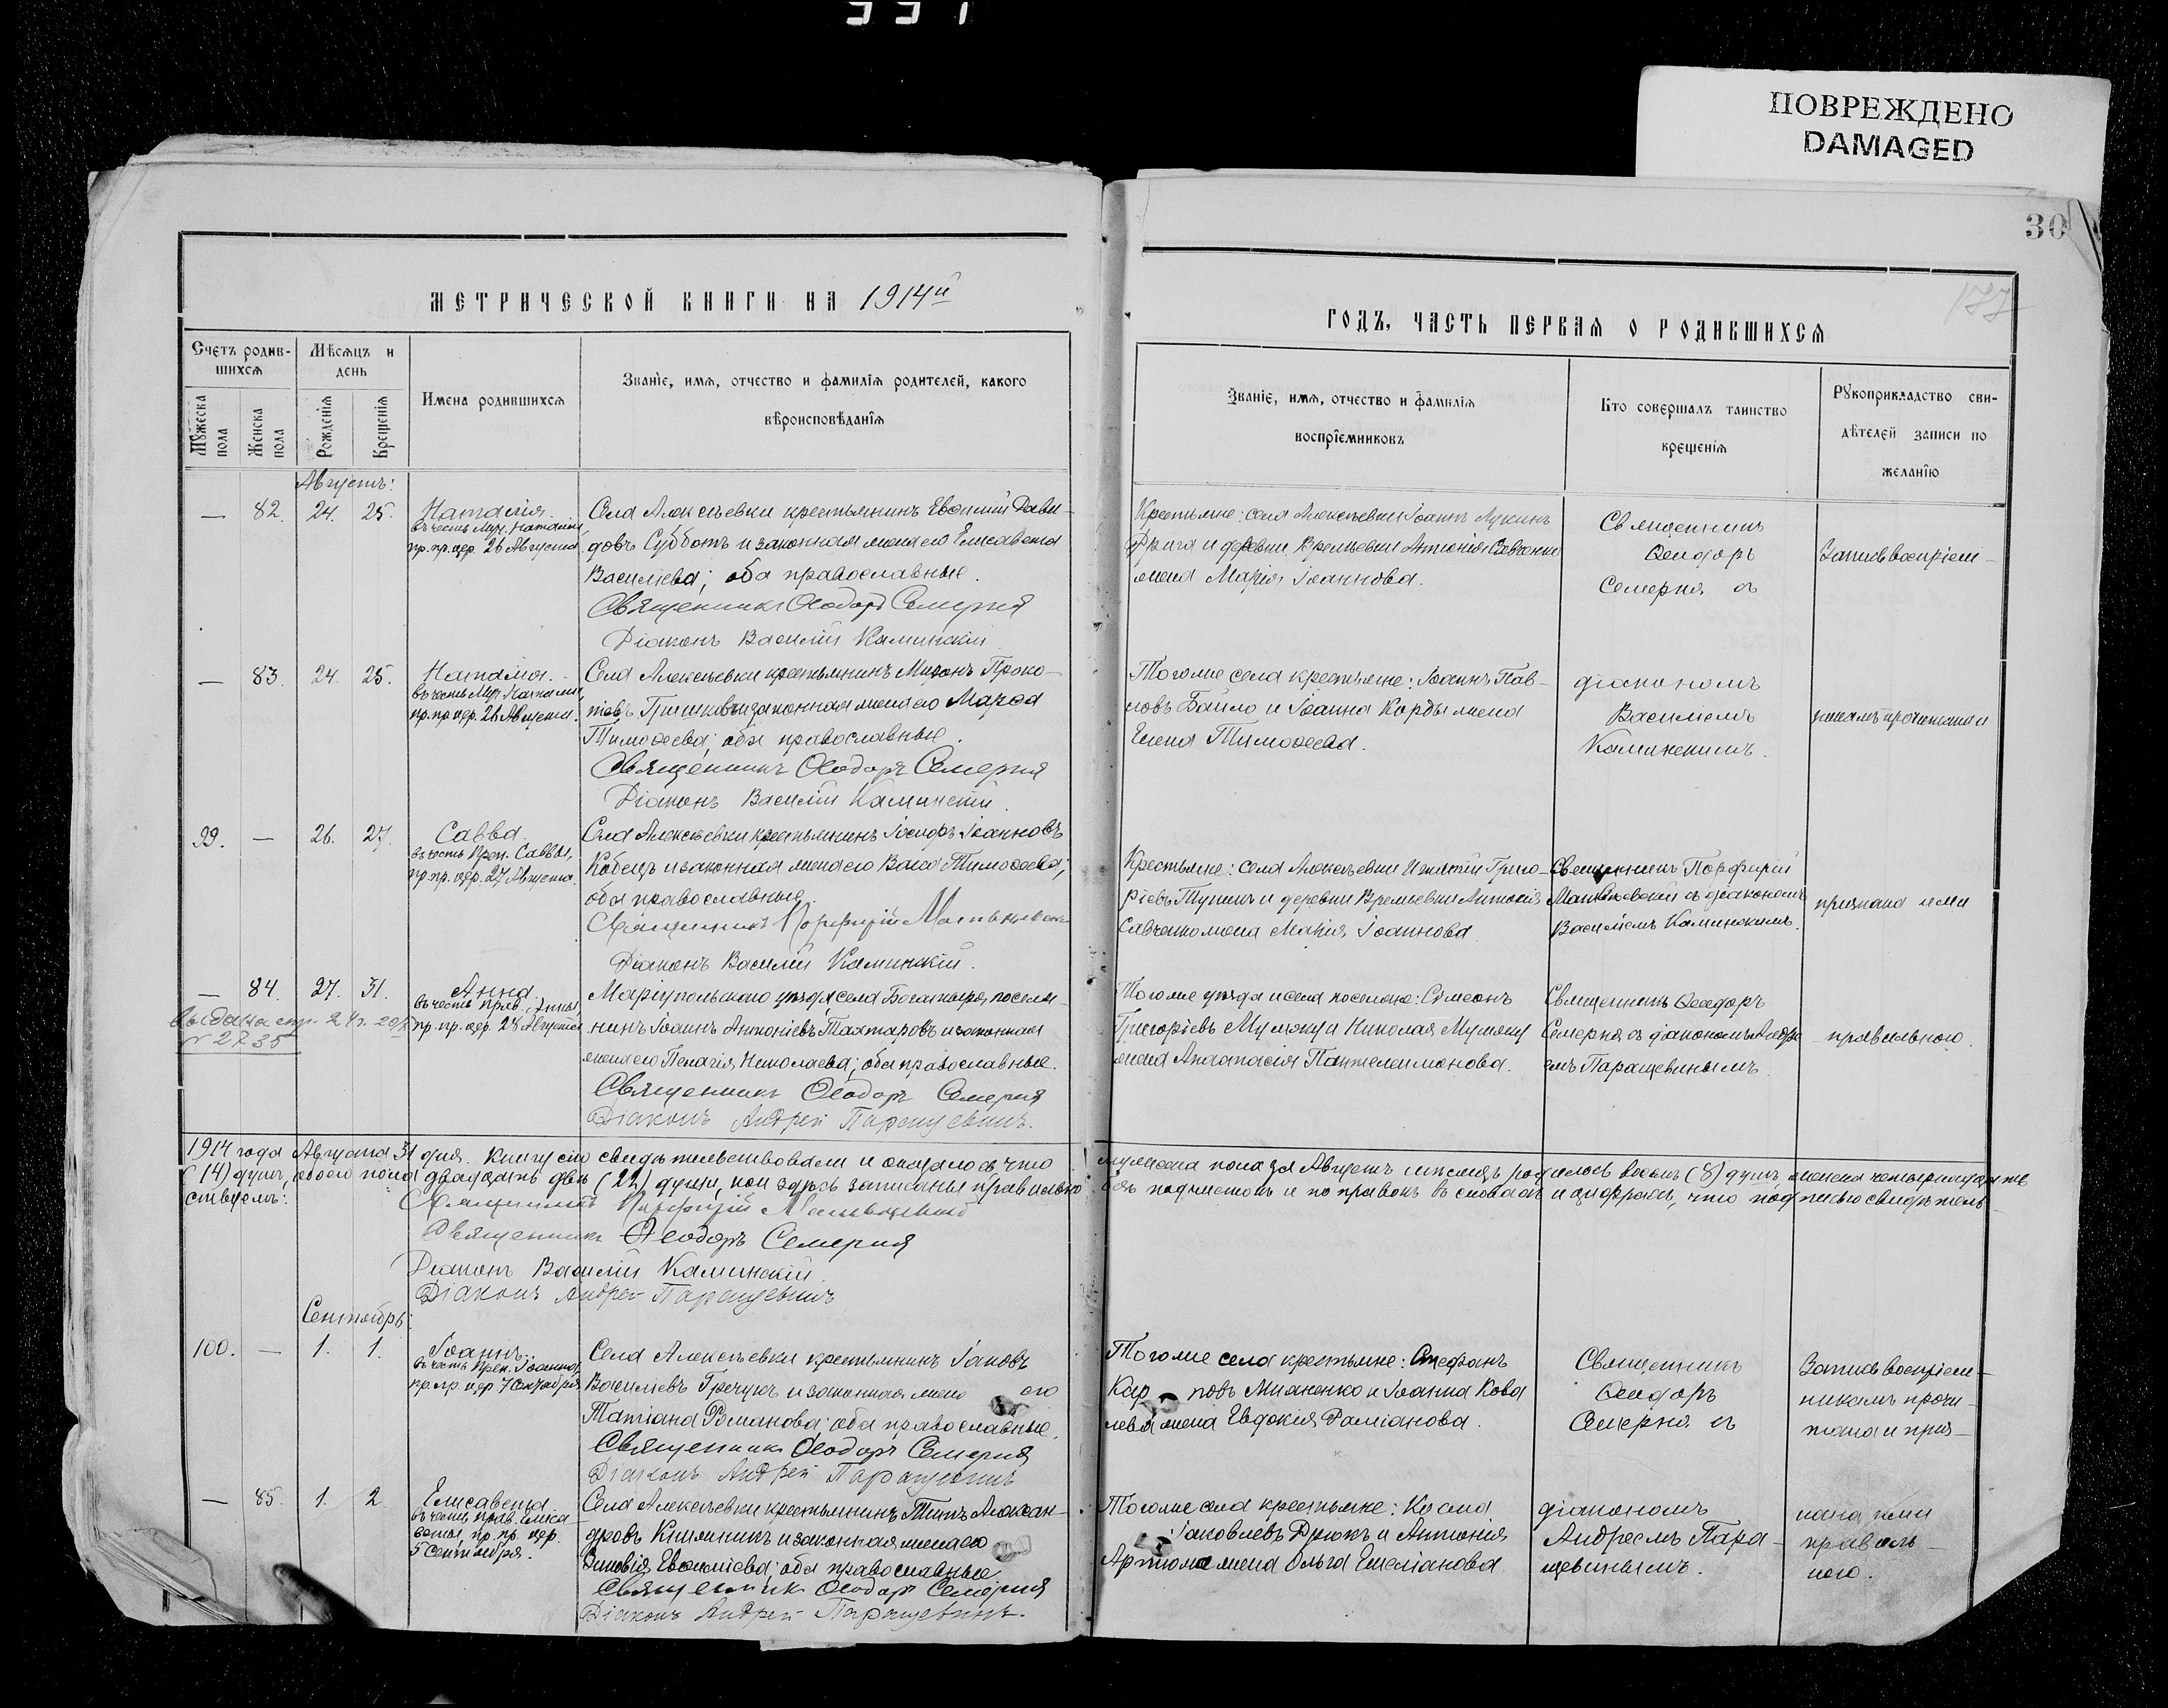 ПОВРЕЖДЕНО
DAMAGED
30
177
МЕТРИЧЕСКОЙ КНИГИ НА 1914й
ГОДЪ, ЧАСТЬ ПЕРВАЯ О РОДИВШИХСЯ
Счетъ родив-
шихся
Мѣсяцъ и
день
Мужеска
пола
Женска
пола
Рожденія
Крещенія
Имена родившихся
Званіе, имя, отчество и фамилія родителей, какого
вѣроисповѣданія
Званіе, имя, отчество и фамилія
воспріемниковъ
Кто совершалъ таинство
крещенія
Рукоприкладство сви-
дѣтелей записи по
желанію
Августъ:
— 82. 24. 25.
Наталія.
въ честь Муч. Наталіи,
пр. пр. цер. 26 Августа.
Села Алексѣевки крестьянинъ Евѳимій Дави-
довъ Субботъ и законная жена его Елисавета
Василіева; оба православные.
Священникъ Ѳеодоръ Семерня
Діаконъ Василій Каминскій
Крестьяне: села Алексѣевки Іоаннъ Лукинъ
Фрига и деревни Времьевки Антонія
жена Марія Іоаннова.
Священникъ
Ѳеодоръ
Семерня съ
Запись воспріем-
— 83. 24. 25.
Наталія.
въ честь Муч. Наталіи,
пр. пр. цер. 26 Августа.
Села Алексѣевки крестьянинъ Миронъ Проко-
піевъ и законная жена его Марѳа
Тимоѳеева; оба православные.
Священникъ Ѳеодоръ Семерня
Діаконъ Василій Каминскій.
Тогоже села крестьяне: Іоаннъ Пав-
ловъ Байло и Іоанна Корды жена
Елена Тимоѳеева.
діакономъ
Василіемъ
Каминскимъ.
никамъ прочитана и
99. — 26. 27.
Савва.
въ честь Преп. Саввы,
пр. пр. цер. 27 Августа.
Села Алексѣевки крестьянинъ Іосифъ Іоанновъ
Кобецъ и законная жена его Васса Тимоѳеева;
оба православные.
Священникъ Порфирій
Діаконъ Василій Каминскій.
Крестьяне: села Алексѣевки Игнатій Григо-
ріевъ Тупикъ и деревни Времьевки Антонія
Савченко жена Марія Іоаннова.
Священникъ Порфирій
съ діакономъ
Василіемъ Каминскимъ.
признана ими
— 84. 27. 31.
Анна.
въ честь прав. Анны,
пр. пр. цер. 28 Августа
выдана
№ 2735
Маріупольскаго уѣзда, села Богатыря, поселя-
нинъ Іоаннъ Антоніевъ Тахтаровъ и законная
жена его Пелагія Николаева; оба православные.
Священникъ Ѳеодоръ Семерня
Діаконъ Андрей Паращевинъ.
Тогоже уѣзда и села поселяне: Симеонъ
Григоріевъ Мумжу и Николая Мумжу
жена Анастасія Пантелеимонова.
Священникъ Ѳеодоръ
Семерня съ діакономъ Андре-
емъ Паращевинымъ.
правильною.
1914 года Августа 31 дня. Книгу сію свидѣтельствовали и оказалось что мужеска пола за Августъ мѣсяцъ родилось восемь (8) душъ, женска четырнадцать
(14) душъ, обоего пола двадцать двѣ (22) души, кои здѣсь записаны правильно безъ подчистокъ и поправокъ въ словахъ и цифрахъ, что подписью свидѣтель-
ствуемъ:
Священникъ Порфирій
Священникъ Ѳеодоръ Семерня
Діаконъ Василій Каминскій.
Діаконъ Андрей Паращевинъ
Сентябрь:
100. — 1. 1.
Іоаннъ.
въ честь Преп. Іоанна,
пр. пр. цер 7 Сентября
Села Алексѣевки крестьянинъ Іаковъ
Василіевъ Гречукъ и законная жена его
Татіана Романова; оба православные.
Священникъ Ѳеодоръ Семерня
Діаконъ Андрей Паращевинъ
Тогоже села крестьяне: Стефанъ
Кар повъ Миненко и Іоанна Кова
лева жена Евдокія Даміанова.
Священникъ
Ѳеодоръ
Семерня съ
Запись воспріем-
никамъ прочи-
тана и приз-
— 85. 1. 2
Елисавета.
въ честь прав. Елиса
веты, пр. пр. цер.
5 Сентября.
Села Алексѣевки крестьянинъ Титъ Алексан-
дровъ и законная жена его
Зиновія Евѳиміева; оба православные
Священникъ Ѳеодоръ Семерня
Діаконъ Андрей Паращевинъ.
Тогоже села крестьяне: Косма
Іаковлевъ Дрюкъ и Антонія
жена Ольга Емеліанова
діакономъ
Андреемъ Пара-
щевинымъ.
нана ими
правиль-
ною.